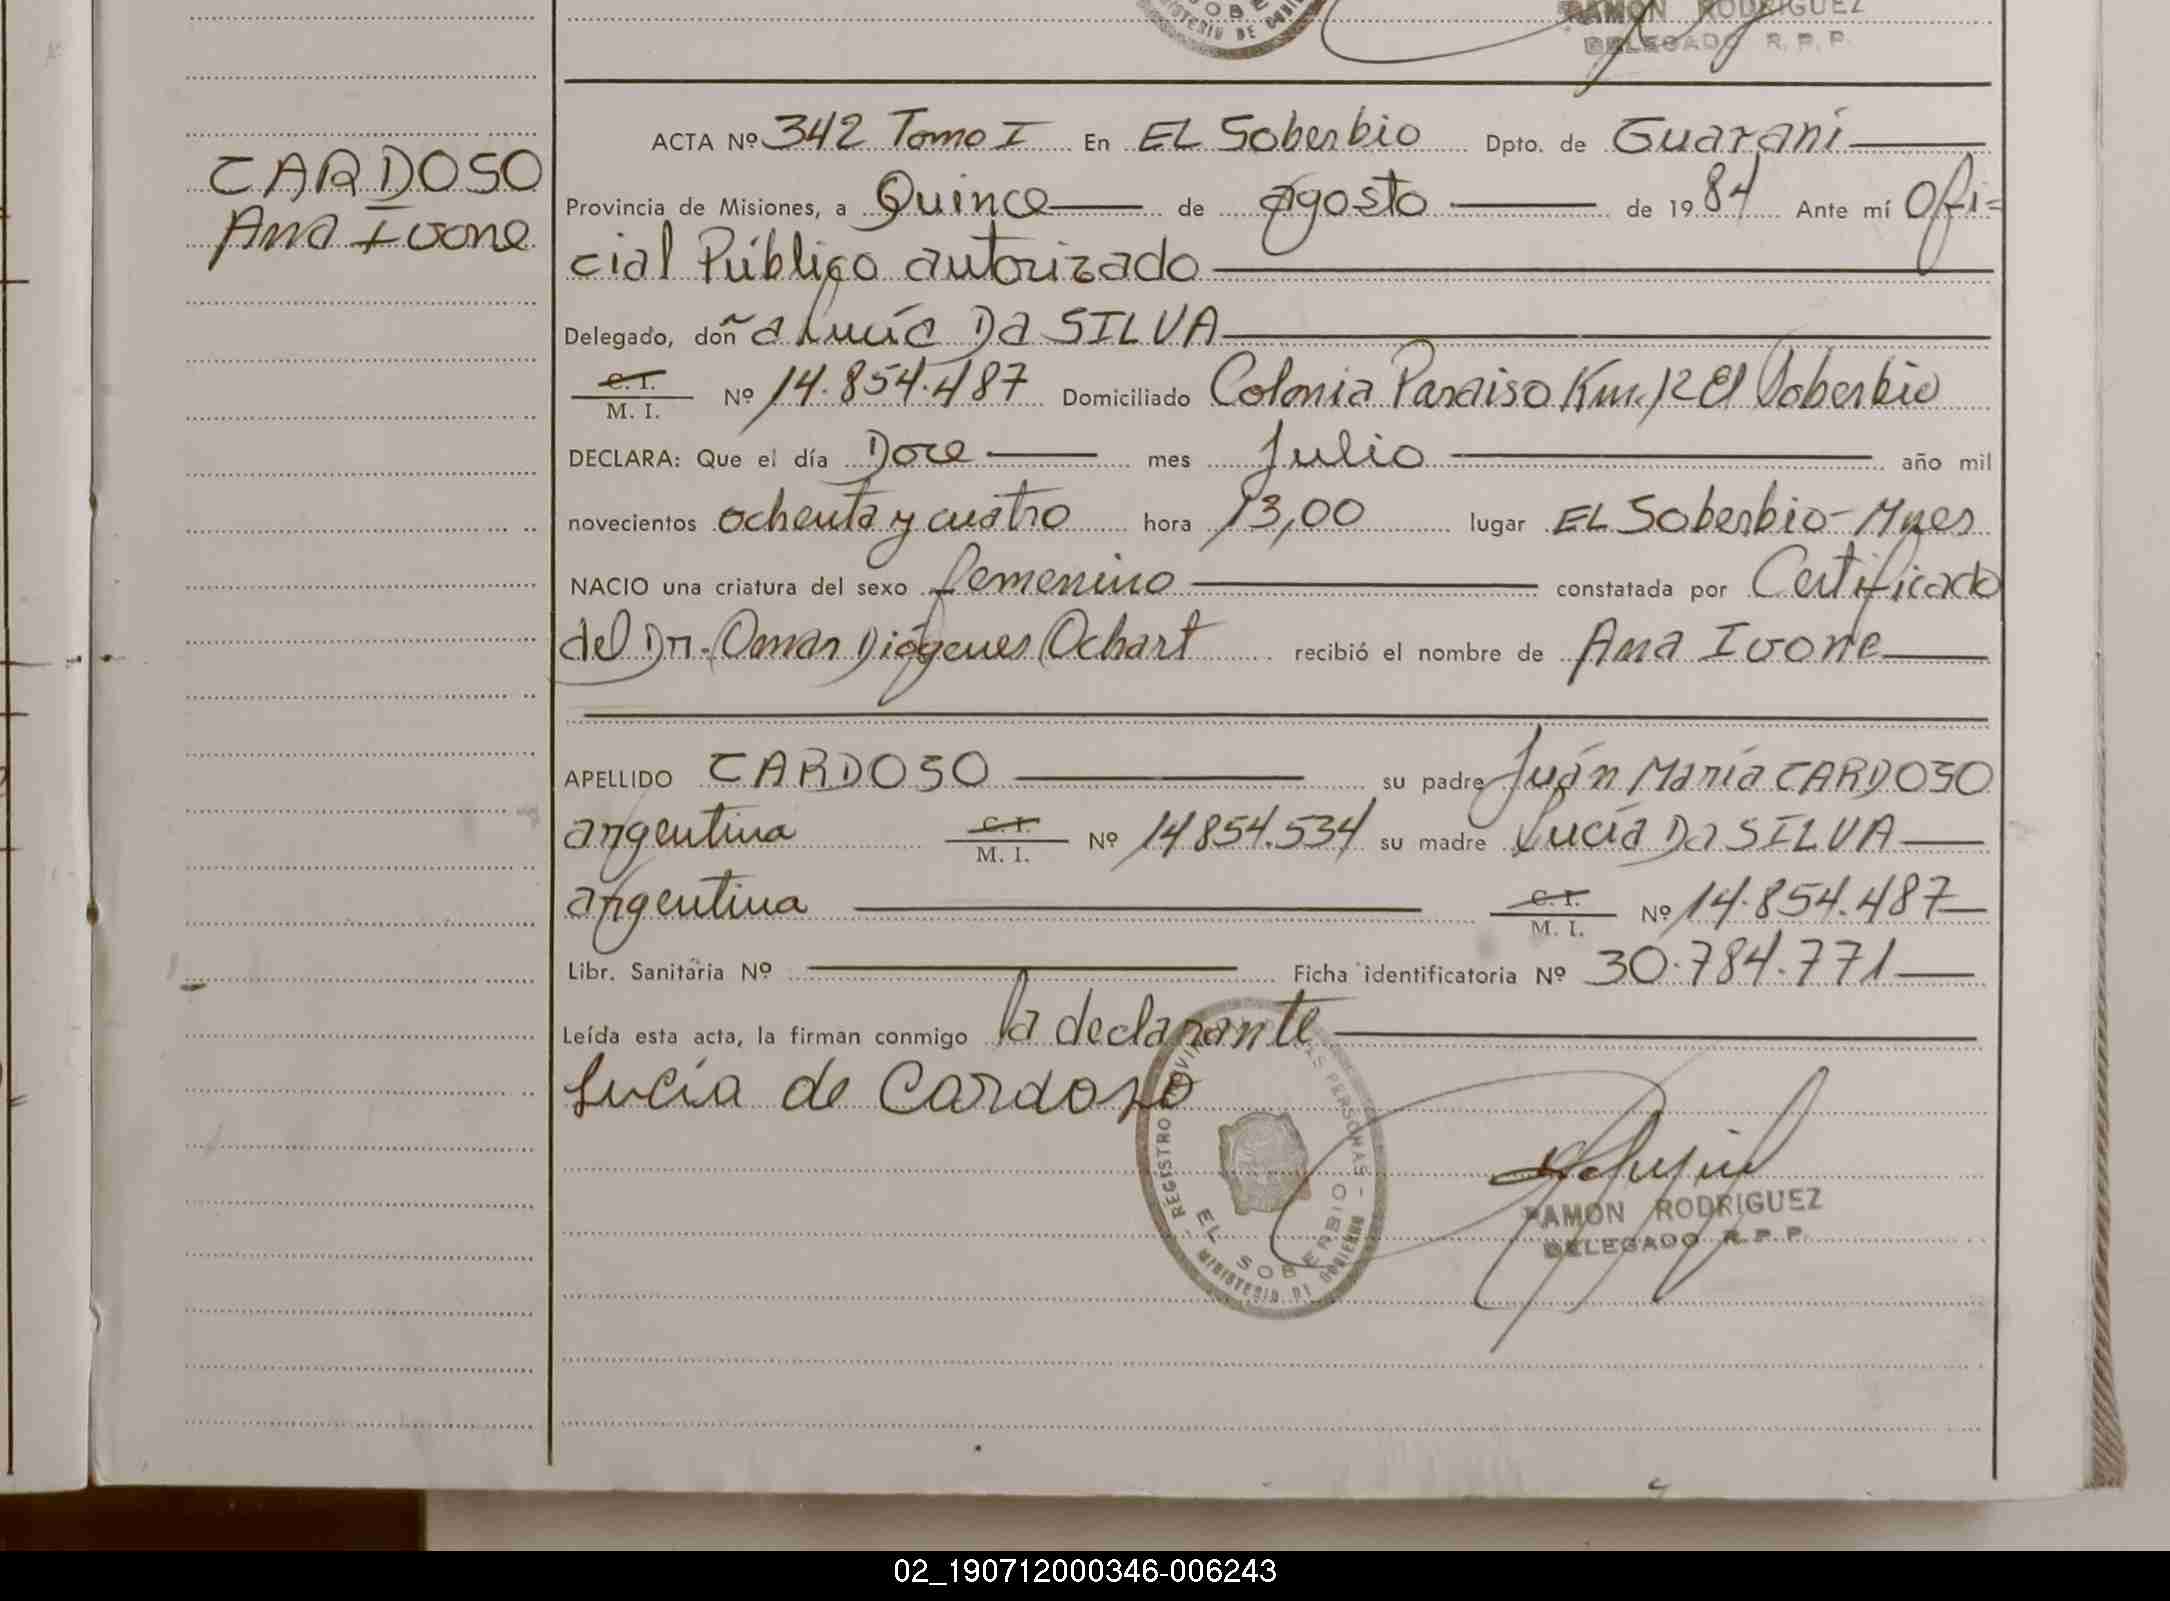 SOBE
MINISTERIO DE GOBIE
RAMON RODRIGUEZ
DELEGADO R. P. P.
CARDOSO
Ana Ivone
ACTA Nº 342 Tomo I En EL Soberbio Dpto. de Guaraní
Provincia de Misiones, a Quince de agosto de 1984 Ante mí Ofi=
cial Público autorizado
Delegado, doña Lucía Da SILVA
C. I.
M. I.
Nº 14.854.487 Domiciliado Colonia Paraiso Km.12 El Soberbio
DECLARA: Que el día Doce mes Julio año mil
novecientos ochenta y cuatro hora 13,00 lugar EL Soberbio-Mnes
NACIO una criatura del sexo femenino constatada por Certificado
del Dr. Omar Diógenes Ochart recibió el nombre de Ana Ivone
APELLIDO CARDOSO su padre Juán María CARDOSO
argentina C. I. M. I. Nº 14854.534 su madre Lucía Da SILVA
argentina C. I. M. I. Nº 14.854.487
Libr. Sanitaria Nº Ficha identificatoria Nº 30.784.771
Leída esta acta, la firman conmigo la declarante
Lucia de Cardozo
REGISTRO PERSONAS
EL SOBERBIO
MINISTERIO DE GOBIERNO
RAMON RODRIGUEZ
DELEGADO R. P. P.
02_190712000346-006243